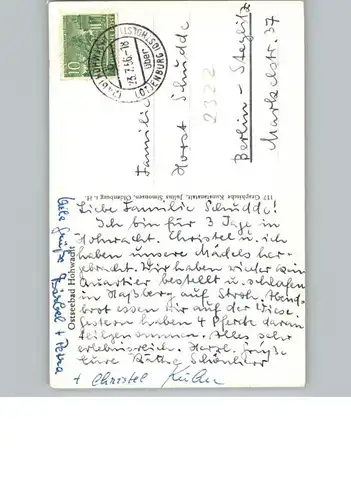 Liebe Familie Schudde!
Ich bin für 3 Tage in
Hohwacht. Christel u. ich
haben unsere Mädels her-
gebracht. Wir haben wieder kein
Quartier bestellt u. schlafen
in Haßberg auf Stroh. Abend-
brot essen wir auf der Wiese.
Gestern haben 4 Pferde daran
teilgenommen. Alles sehr
erlebnisreich. Herzl. Grüße
Eure
+ Christel
Viele Grüße Bärbel + Petra
Ostseebad Hohwacht
117 Graphische Kunstanstalt, Julius Simonsen, Oldenburg i. H.
Familie
Horst Schudde
Berlin - Steglitz
Markelstr. 37
2322
10
HOHWACHT
über
(OLDENBURG (HOLST)
28.7.56-18